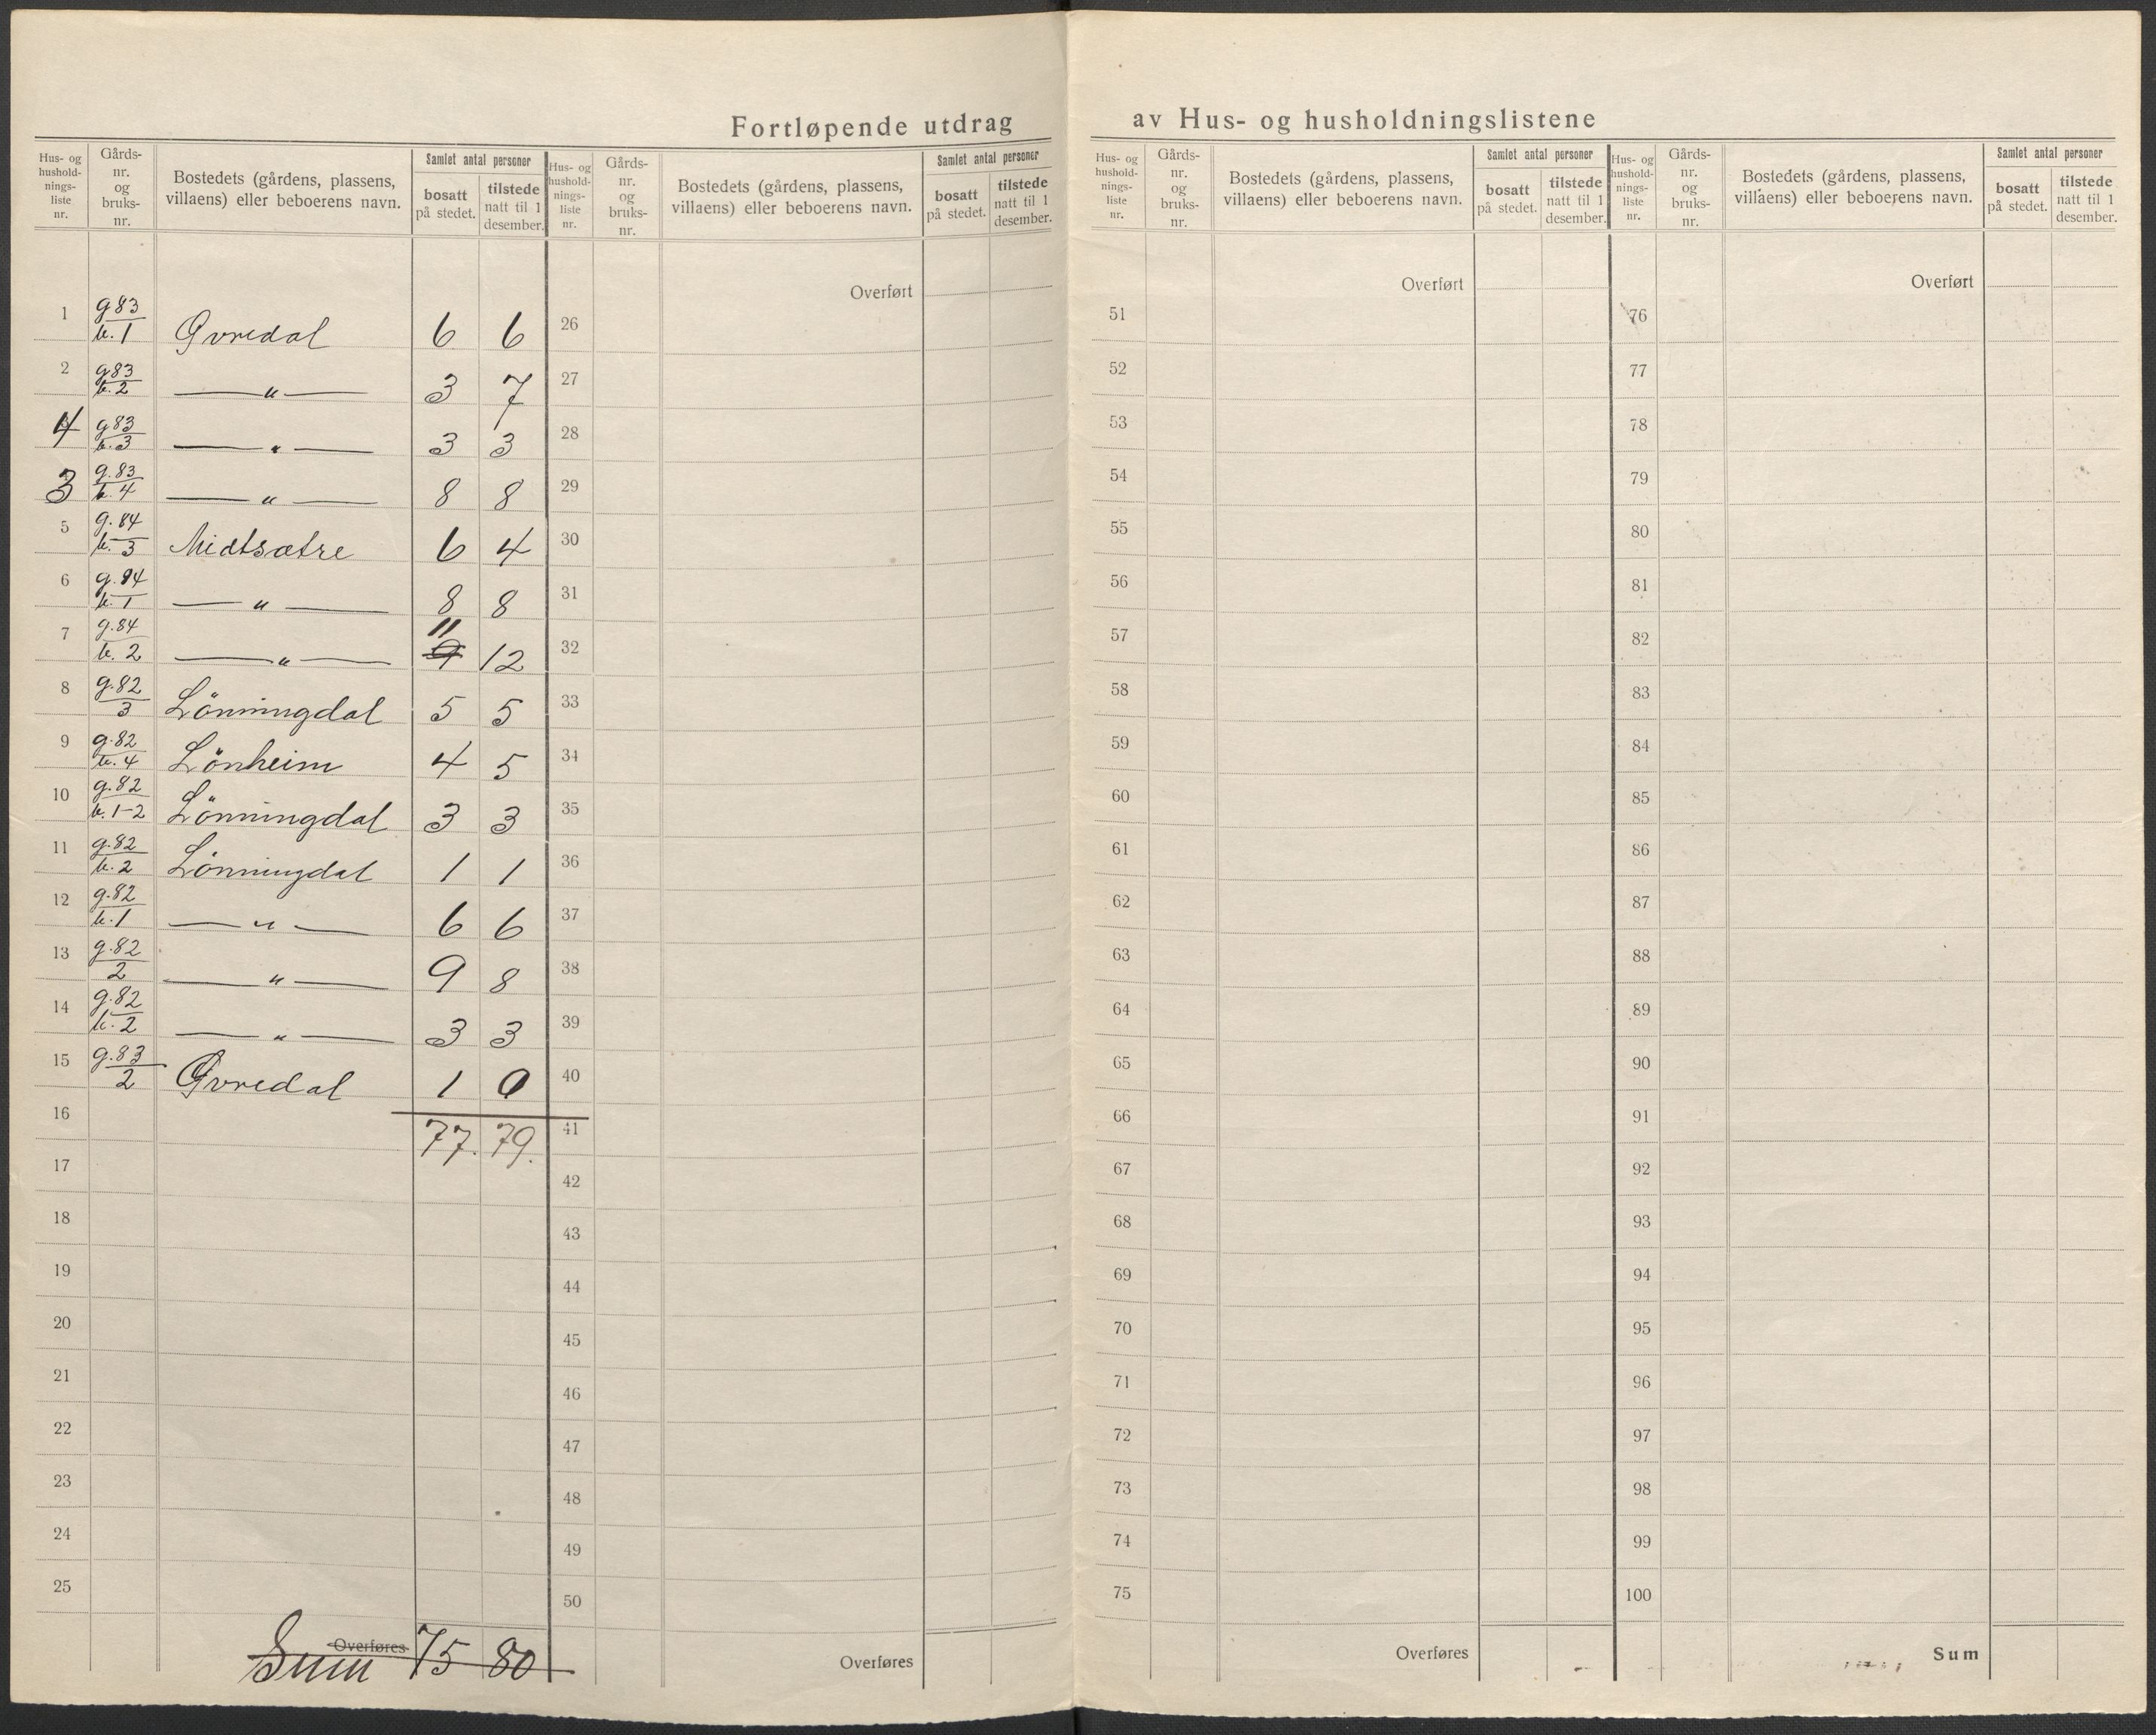 Fortløpende utdrag av Hus- og husholdningslistene
Hus- og husholdnings-liste nr. Gårds-nr. og bruks-nr. Bostedets (gårdens, plassens, villaens) eller beboerens navn. Samlet antal personer bosatt på stedet. tilstede natt til 1 desember.
1 g 83 b. 1 Øvredal 6 6
2 g 83 b. 2 — " — 3 7
4 g 83 b. 3 — " — 3 3
3 g. 83 b. 4 — " — 8 8
5 g. 84 b. 3 Midtsætre 6 4
6 g. 84 b. 1 — " — 8 8
7 g. 84 b. 2 — " — 9 11 12
8 g. 82 3 Lönningdal 5 5
9 g. 82 b. 4 Lönheim 4 5
10 g. 82 b. 1-2 Lönningdal 3 3
11 g. 82 b. 2 Lönningdal 1 1
12 g. 82 b. 1 — " — 6 6
13 g. 82 2 — " — 9 8
14 g. 82 b. 2 — " — 3 3
15 g. 83 2 Øvredal 1 0
16 77. 79.
17
18
19
20
21
22
23
24
25
Overføres Sum 75 80
Hus- og husholdnings-liste nr. Gårds-nr. og bruks-nr. Bostedets (gårdens, plassens, villaens) eller beboerens navn. Samlet antal personer bosatt på stedet. tilstede natt til 1 desember.
Overført
26
27
28
29
30
31
32
33
34
35
36
37
38
39
40
41
42
43
44
45
46
47
48
49
50
Overføres
Hus- og husholdnings-liste nr. Gårds-nr. og bruks-nr. Bostedets (gårdens, plassens, villaens) eller beboerens navn. Samlet antal personer bosatt på stedet. tilstede natt til 1 desember.
Overført
51
52
53
54
55
56
57
58
59
60
61
62
63
64
65
66
67
68
69
70
71
72
73
74
75
Overføres
Hus- og husholdnings-liste nr. Gårds-nr. og bruks-nr. Bostedets (gårdens, plassens, villaens) eller beboerens navn. Samlet antal personer bosatt på stedet. tilstede natt til 1 desember.
Overført
76
77
78
79
80
81
82
83
84
85
86
87
88
89
90
91
92
93
94
95
96
97
98
99
100
Sum